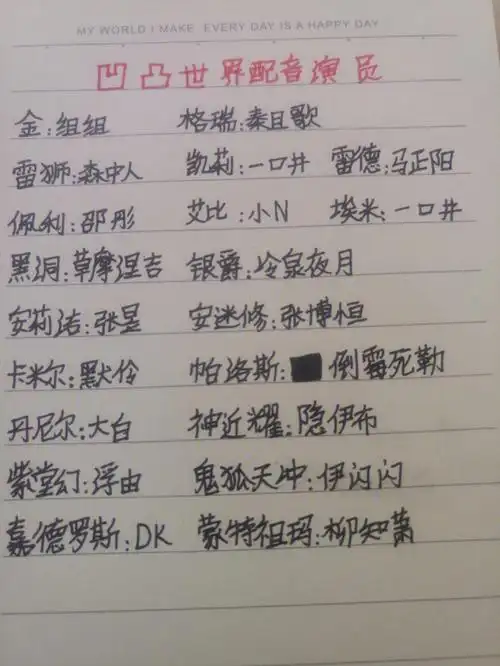 MY WORLD I MAKE EVERY DAY IS A HAPPY DAY
凹凸世界配音演员
金:组组 格瑞:秦且歌
雷狮:森中人 凯莉:一口井 雷德:马正阳
佩利:邵彤 艾比:小N 埃米:一口井
黑洞:草摩涅吉 银爵:冷泉夜月
安莉洁:张昱 安迷修:张博恒
卡米尔:默伶 帕洛斯:倒霉死勒
丹尼尔:大白 神近耀:隐伊布
紫堂幻:浮由 鬼狐天冲:伊闪闪
嘉德罗斯:DK 蒙特祖玛:柳知萧